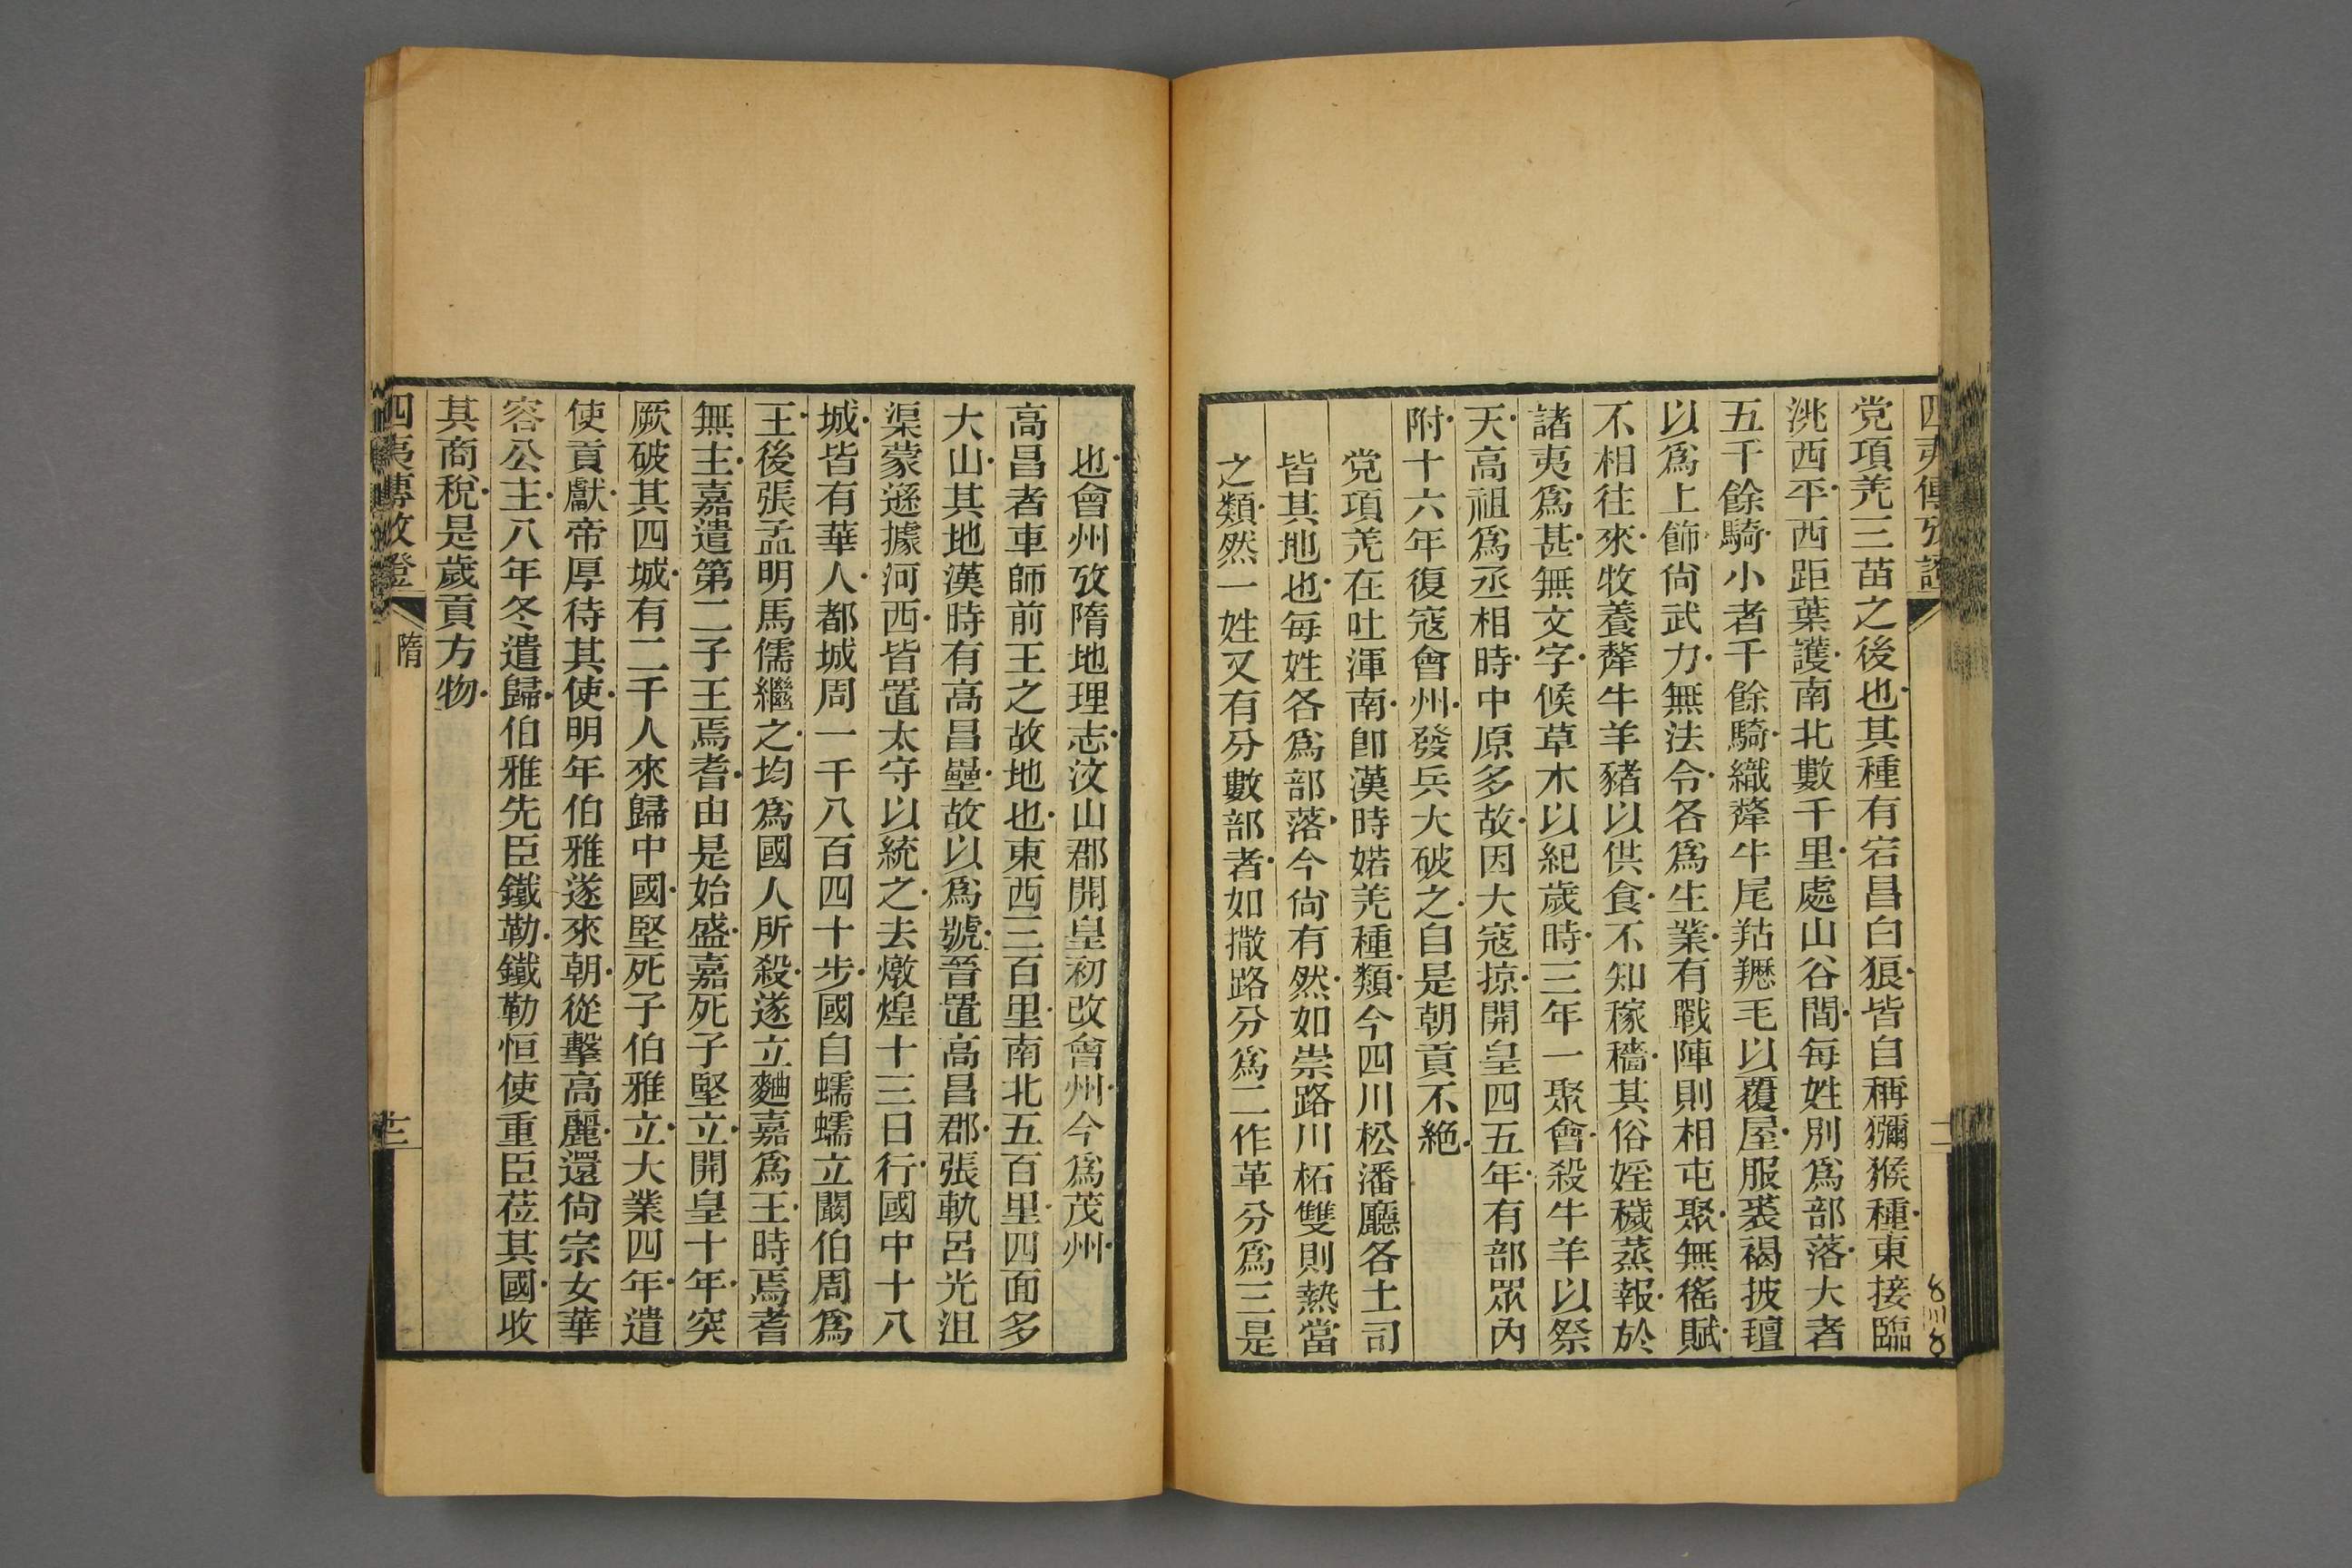 四夷傳攷證
党項羌三苗之後也其種有宕昌白狼皆自稱獼猴種東接臨
洮西平西距葉護南北數千里處山谷間每姓別爲部落大者
五千餘騎小者千餘騎織犛牛尾羖䍽毛以覆屋服裘褐披氊
以爲上飾尙武力無法令各爲生業有戰陣則相屯聚無徭賦
不相往來牧養犛牛羊豬以供食不知稼穡其俗婬穢蒸報於
諸夷爲甚無文字候草木以紀歲時三年一聚會殺牛羊以祭
天高祖爲丞相時中原多故因大寇掠開皇四五年有部眾內
附十六年復寇會州發兵大破之自是朝貢不絶
党項羌在吐渾南卽漢時婼羌種類今四川松潘廳各土司
皆其地也每姓各爲部落今尙有然如崇路川柘雙則熱當
之類然一姓又有分數部者如撒路分爲二作革分爲三是
也會州攷隋地理志汶山郡開皇初改會州今爲茂州
高昌者車師前王之故地也東西三百里南北五百里四面多
大山其地漢時有高昌壘故以爲號晉置高昌郡張軌呂光沮
渠蒙遜據河西皆置太守以統之去燉煌十三日行國中十八
城皆有華人都城周一千八百四十步國自蠕蠕立闞伯周爲
王後張孟明馬儒繼之均爲國人所殺遂立麴嘉爲王時焉耆
無主嘉遣第二子王焉耆由是始盛嘉死子堅立開皇十年突
厥破其四城有二千人來歸中國堅死子伯雅立大業四年遣
使貢獻帝厚待其使明年伯雅遂來朝從擊高麗還尙宗女華
容公主八年冬遣歸伯雅先臣鐵勒鐵勒恒使重臣莅其國收
其商稅是歲貢方物
四夷傳攷證 隋